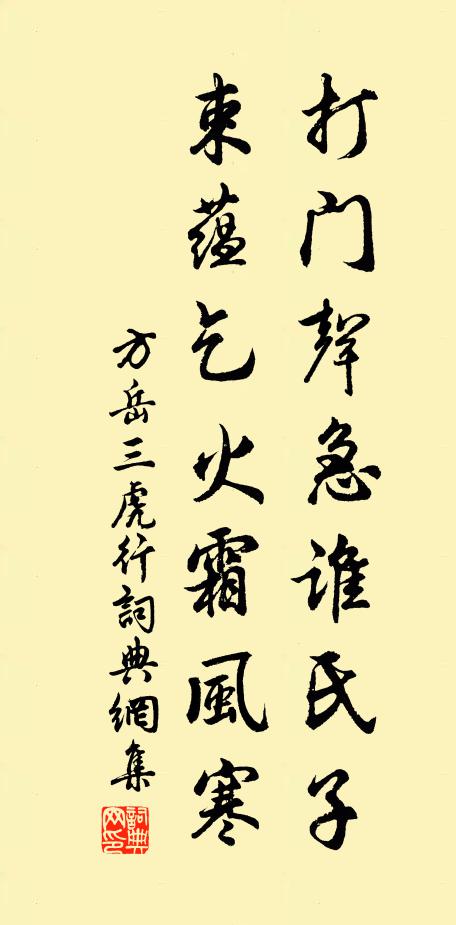 打门聲急誰氏子
束蕴乞火霜風寒
方岳三虎行詞典網集
詞典网印